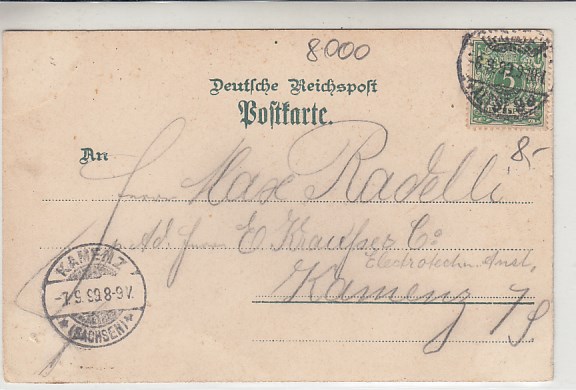 8000
5
Deutsche Reichspost
Postkarte.
8,-
An
Herrn Max Radelli
p. Adr. Herrn E. Krausser Co
Electrotechn. Anst.
Kamenz i/S
KAMENZ
-7.9.99.8-9.V.
*(SACHSEN)*